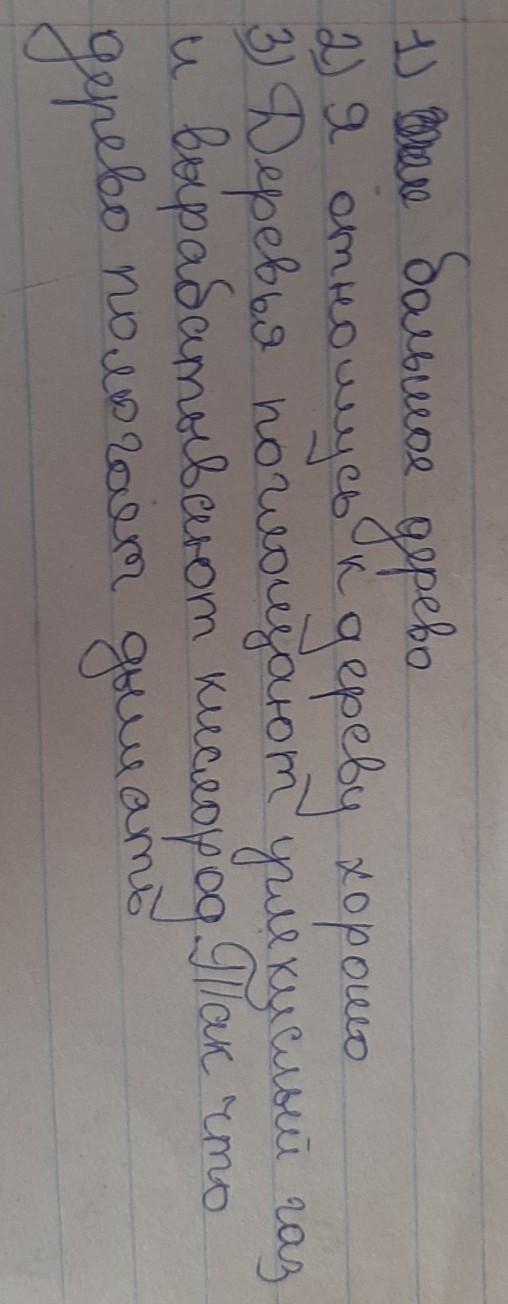 1) большое дерево
2) Я отношусь к дереву хорошо
3) Деревья поглощают углекислый газ
и вырабатывают кислород. Так что
дерево пологает дышать